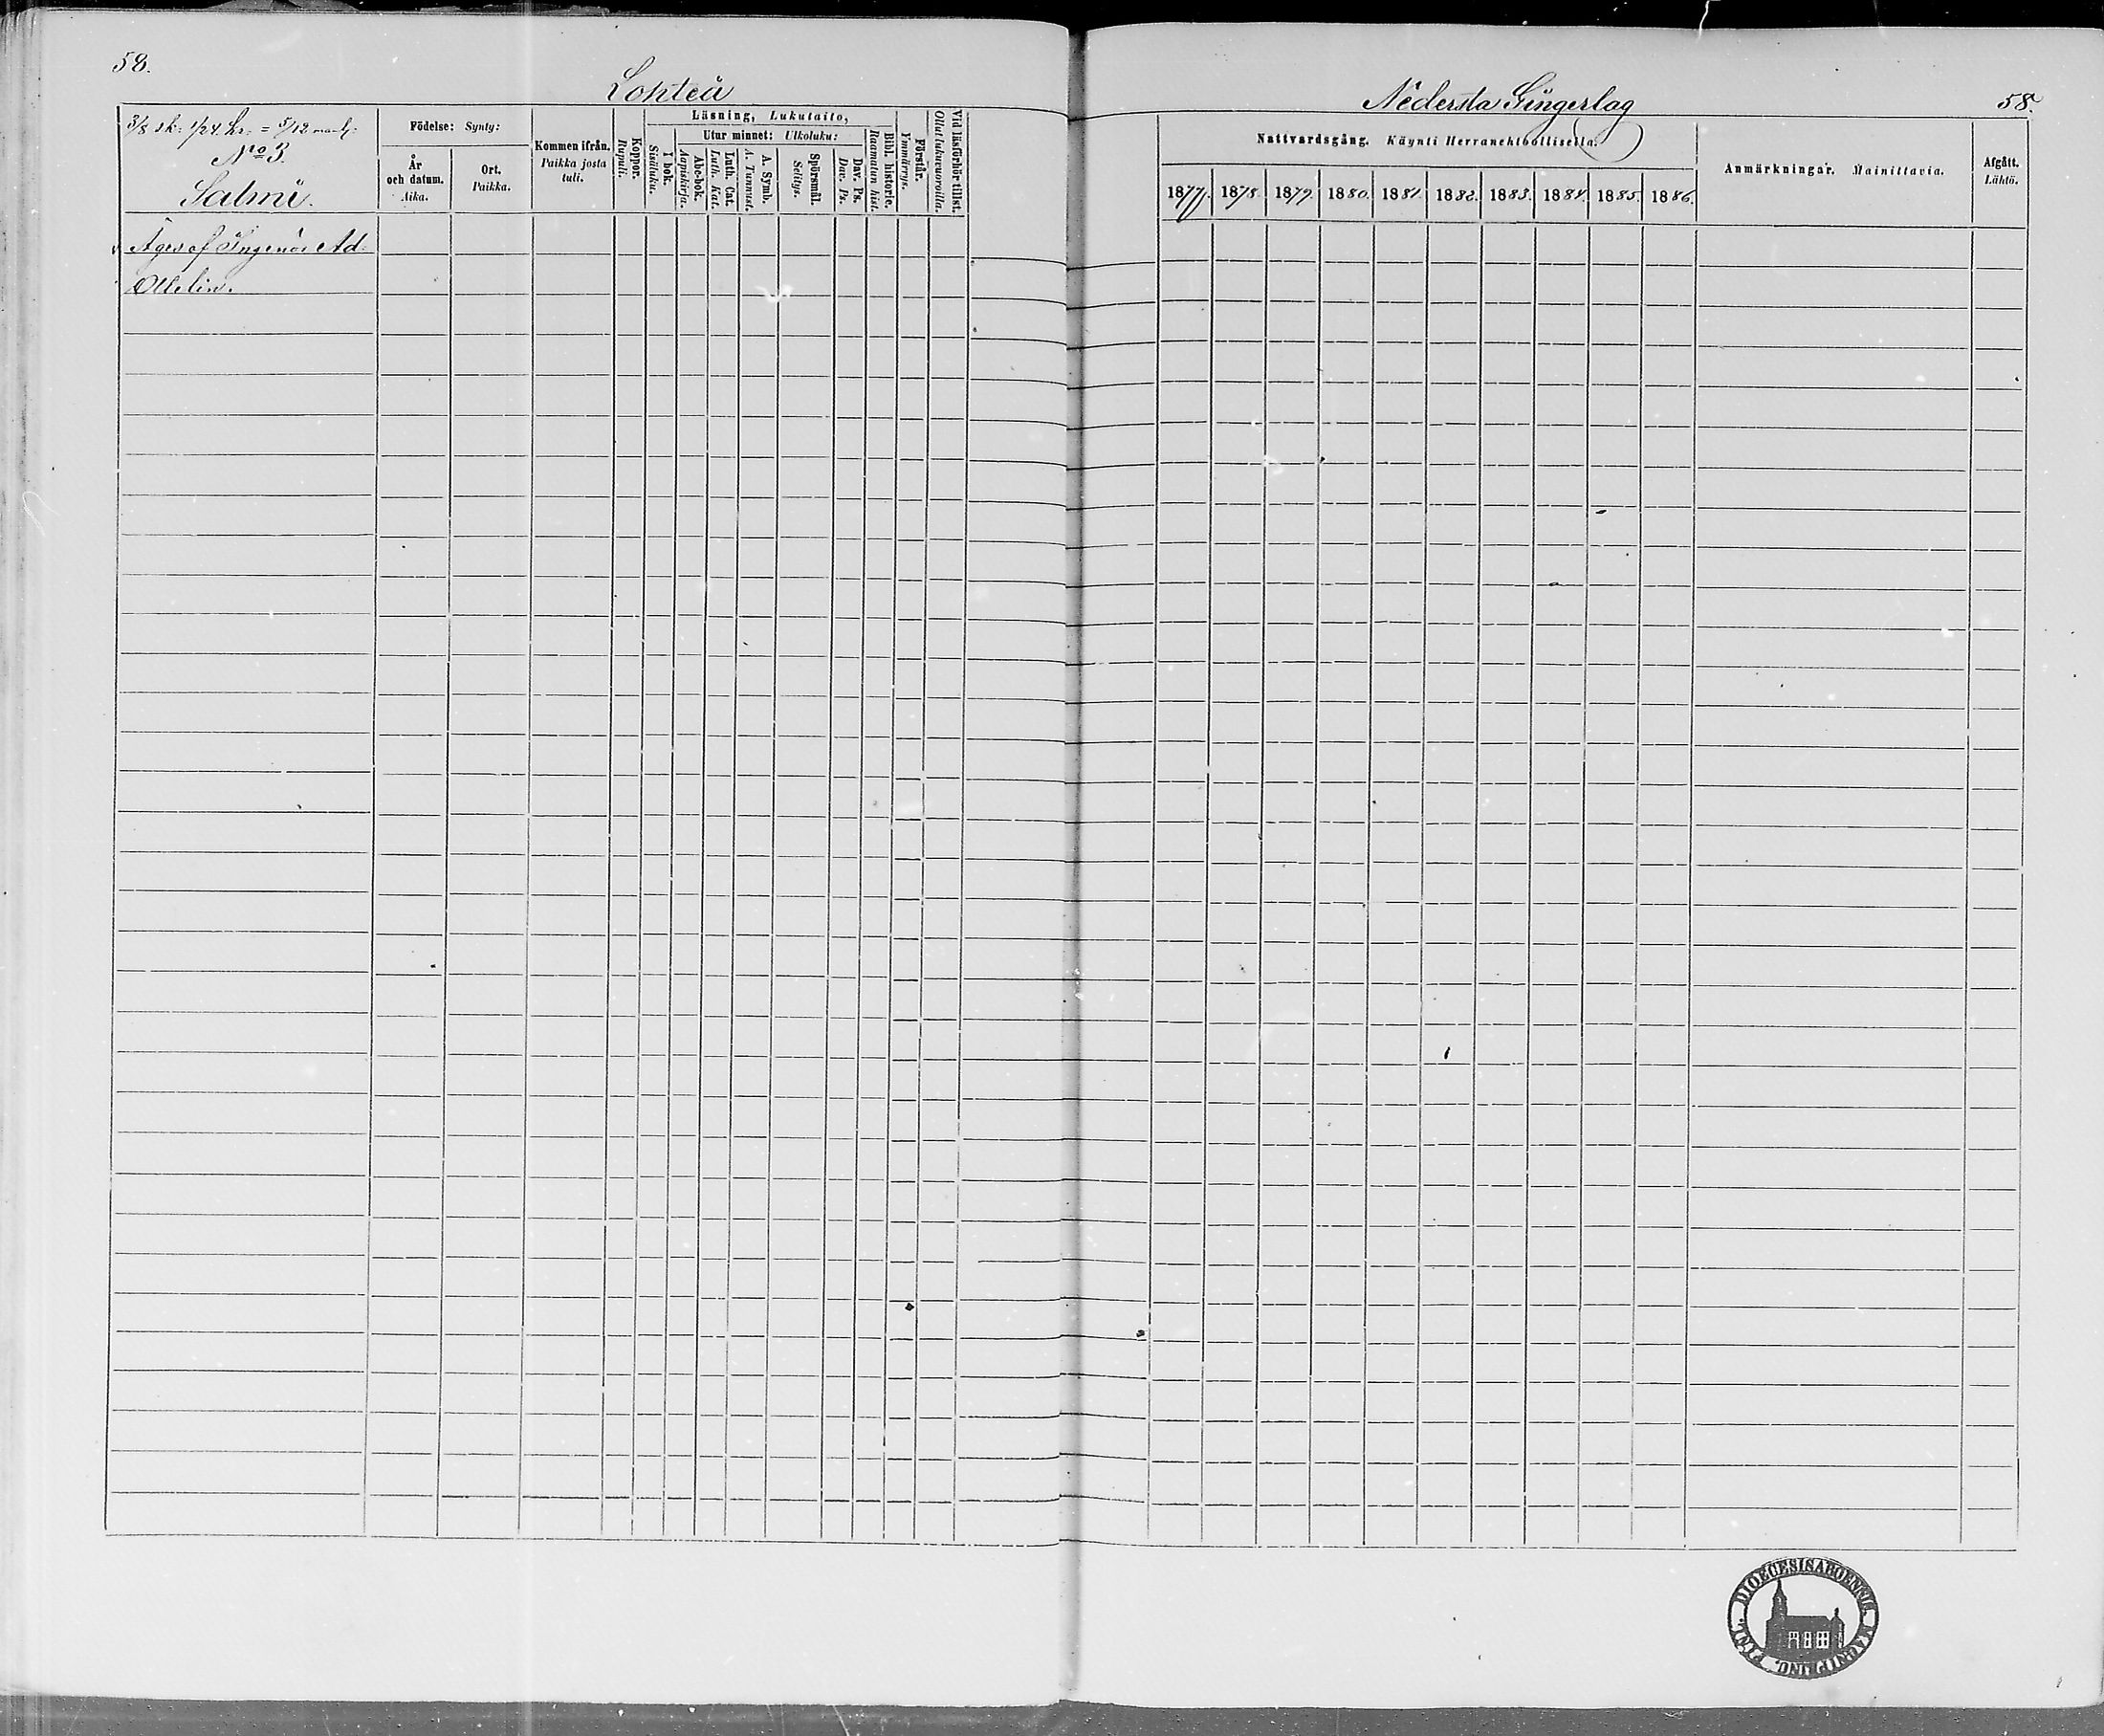 58.
Lohteå
3/8 sk: 1/24 hr: = 5/12 mantl:
No 3.
Salmi.
Födelse: Synty:
År och datum. Aika.
Ort. Paikka.
Kommen ifrån. Paikka josta tuli.
Koppor. Rupuli.
Läsning, Lukutaito,
I bok. Sisäluku.
Utur minnet: Ulkoluku:
Abc-bok. Aapiskirja.
Luth. Cat. Luth. Kat.
A. Symb. A. Tunnust.
Spörsmål. Selitys.
Dav. Ps. Dav. Ps.
Bibl. historie. Raamatun hist.
Förstår. Ymmärrys.
Vid läsförhör tillst. Ollut lukuvuoroilla.
Äges af Ingenör Ad-
Ollelin.
Nedersta Gingerlag
58.
Nattvardsgång. Käynti Herranehtoollisella.
1877. 1878. 1879. 1880. 1881. 1882. 1883. 1884. 1885. 1886.
Anmärkningar. Mainittavia.
Afgått. Lähtö.
DIOECESIS ABOENSIS MAGNI DUC. FINL.